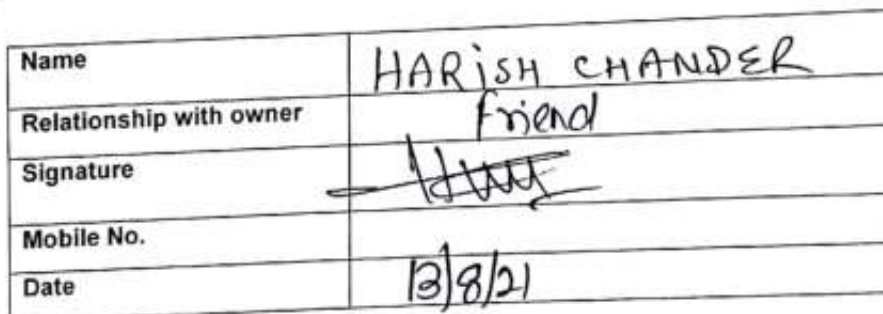 Name HARISH CHANDER
Relationship with owner Friend
Signature
Mobile No.
Date 13/8/21